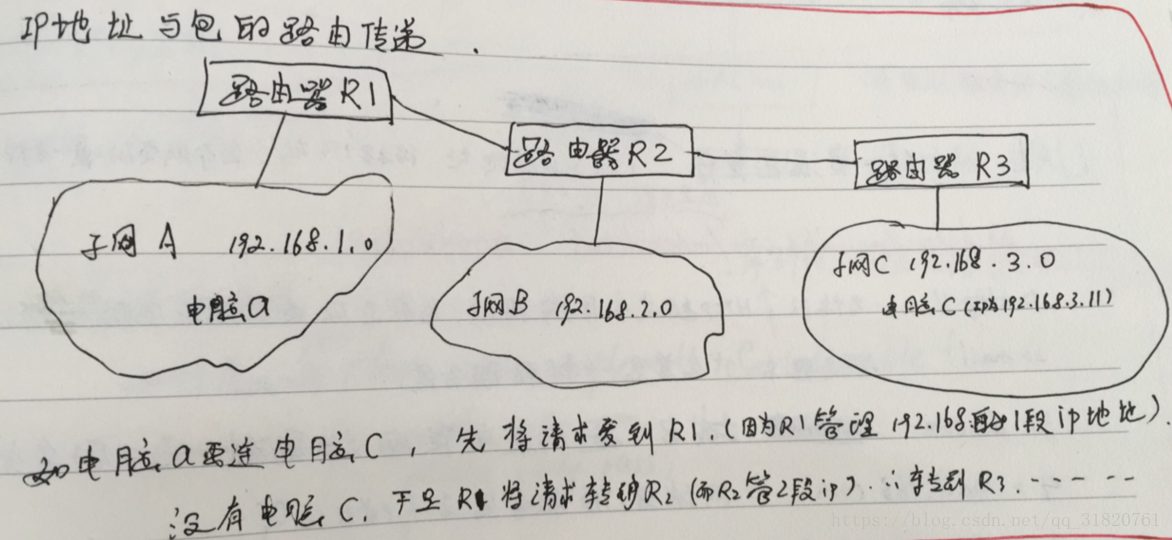 IP地址与包的路由传递.
路由器R1
路由器R2
路由器R3
子网A 192.168.1.0
电脑a
子网B 192.168.2.0
子网C 192.168.3.0
电脑C 192.168.3.11)
如电脑a要连电脑C，先将请求发到R1.因为R1管理192.168 1段ip地址).
没有电脑C.于是R1将请求转给R2(而R2管2段ip) ∴转到R3.-----
https://blog.csdn.net/qq_31820761